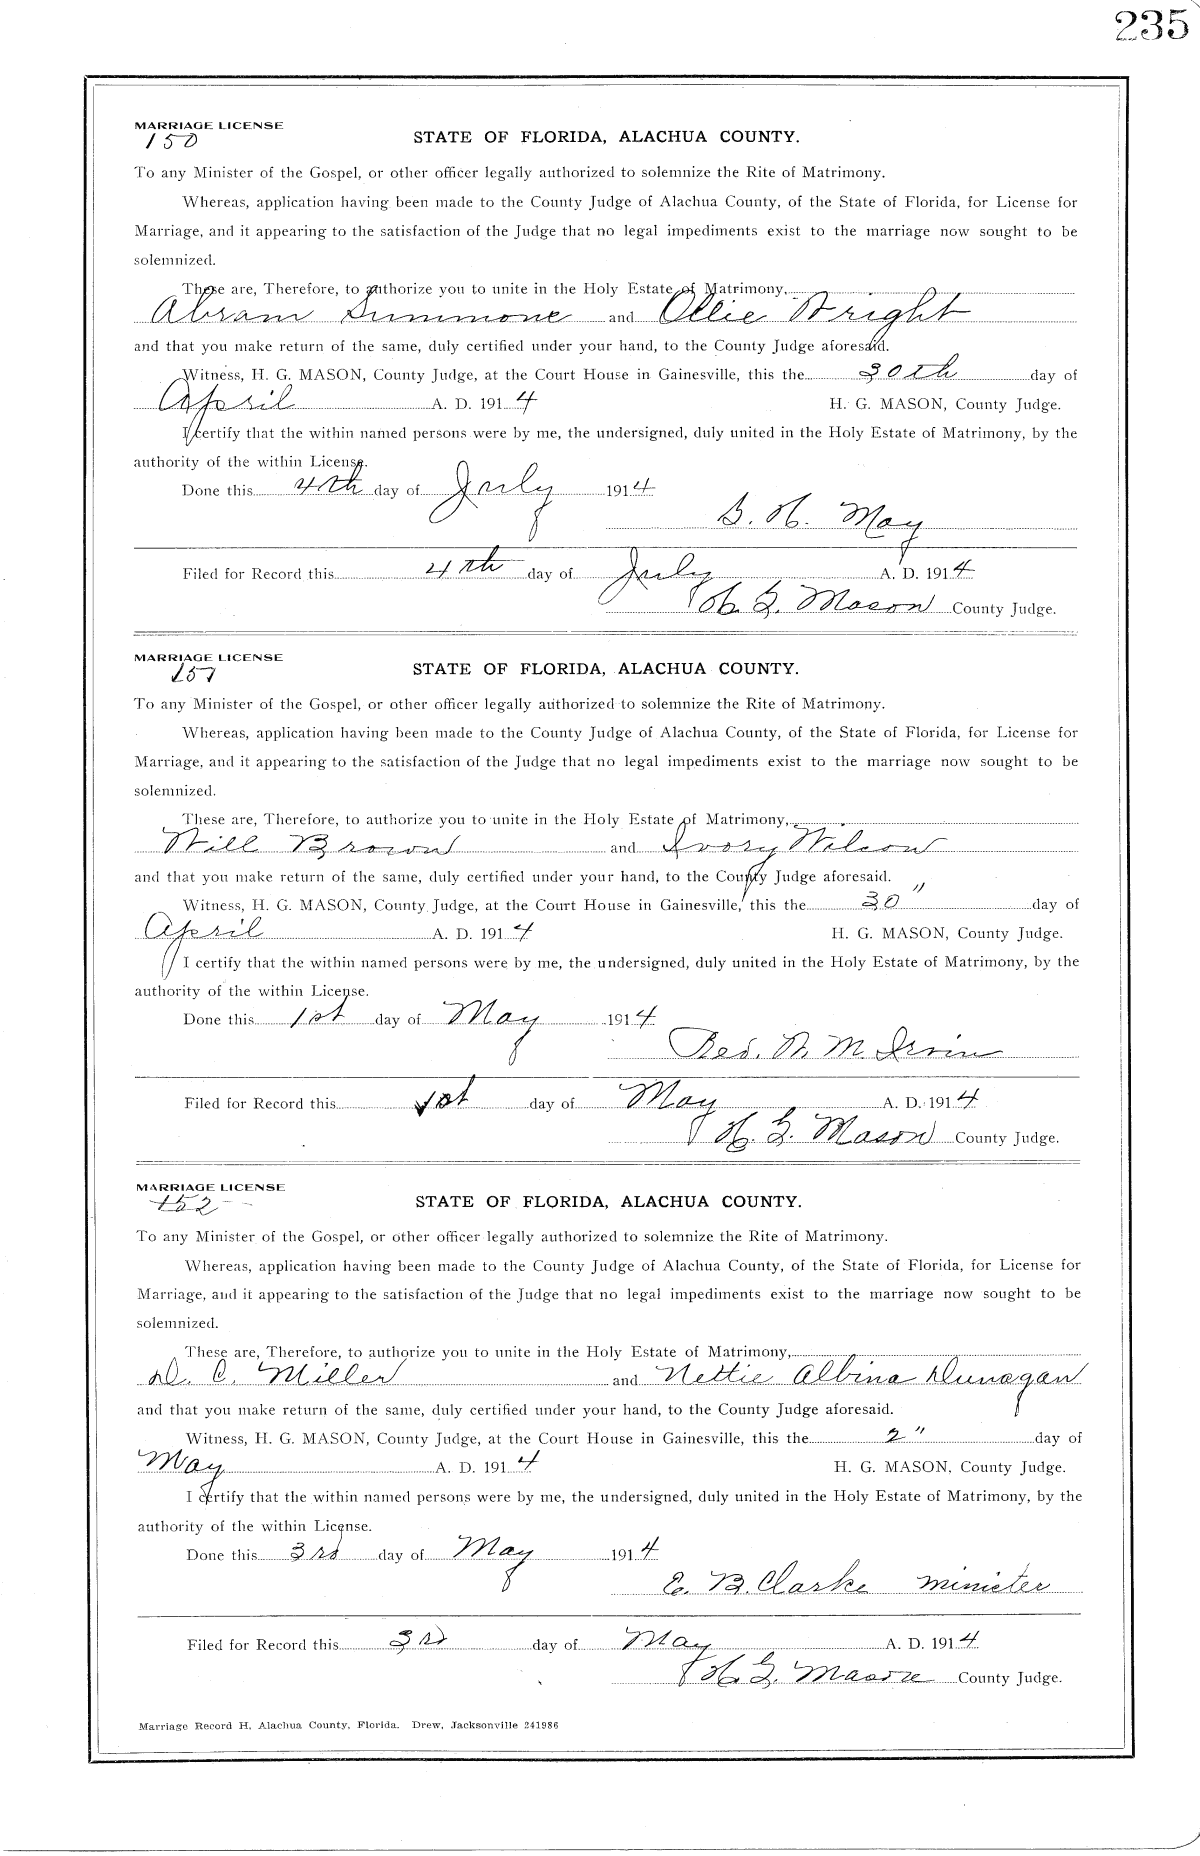 235
MARRIAGE LICENSE
150
STATE OF FLORIDA, ALACHUA COUNTY.
To any Minister of the Gospel, or other officer legally authorized to solemnize the Rite of Matrimony.
Whereas, application having been made to the County Judge of Alachua County, of the State of Florida, for License for
Marriage, and it appearing to the satisfaction of the Judge that no legal impediments exist to the marriage now sought to be
solemnized.
These are, Therefore, to authorize you to unite in the Holy Estate of Matrimony,
Abram Summone and Ollie Wright
and that you make return of the same, duly certified under your hand, to the County Judge aforesaid.
Witness, H. G. MASON, County Judge, at the Court House in Gainesville, this the 30th day of
April A. D. 1914 H. G. MASON, County Judge.
I certify that the within named persons were by me, the undersigned, duly united in the Holy Estate of Matrimony, by the
authority of the within License.
Done this 4th day of July 1914
S. H. May
Filed for Record this 4th day of July A. D. 1914
H. G. Mason County Judge.
MARRIAGE LICENSE
151
STATE OF FLORIDA, ALACHUA COUNTY.
To any Minister of the Gospel, or other officer legally authorized to solemnize the Rite of Matrimony.
Whereas, application having been made to the County Judge of Alachua County, of the State of Florida, for License for
Marriage, and it appearing to the satisfaction of the Judge that no legal impediments exist to the marriage now sought to be
solemnized.
These are, Therefore, to authorize you to unite in the Holy Estate of Matrimony,
Will Brown and Ivory Wilson
and that you make return of the same, duly certified under your hand, to the County Judge aforesaid.
Witness, H. G. MASON, County Judge, at the Court House in Gainesville, this the 30" day of
April A. D. 1914 H. G. MASON, County Judge.
I certify that the within named persons were by me, the undersigned, duly united in the Holy Estate of Matrimony, by the
authority of the within License.
Done this 1st day of May 1914
Rev. M. Irvin
Filed for Record this 1st day of May A. D. 1914
H. G. Mason County Judge.
MARRIAGE LICENSE
152
STATE OF FLORIDA, ALACHUA COUNTY.
To any Minister of the Gospel, or other officer legally authorized to solemnize the Rite of Matrimony.
Whereas, application having been made to the County Judge of Alachua County, of the State of Florida, for License for
Marriage, and it appearing to the satisfaction of the Judge that no legal impediments exist to the marriage now sought to be
solemnized.
These are, Therefore, to authorize you to unite in the Holy Estate of Matrimony,
D. C. Miller and Nettie Albina Dunagan
and that you make return of the same, duly certified under your hand, to the County Judge aforesaid.
Witness, H. G. MASON, County Judge, at the Court House in Gainesville, this the 2" day of
May A. D. 1914 H. G. MASON, County Judge.
I certify that the within named persons were by me, the undersigned, duly united in the Holy Estate of Matrimony, by the
authority of the within License.
Done this 3rd day of May 1914
E. B. Clarke minister
Filed for Record this 3rd day of May A. D. 1914
H. G. Mason County Judge.
Marriage Record H, Alachua County, Florida. Drew, Jacksonville 241986